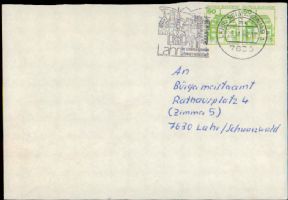 50
Lahr
7630
An
Bürgermeisteramt
Rathausplatz 4
(Zimmer 5)
7630 Lahr/Schwarzwald